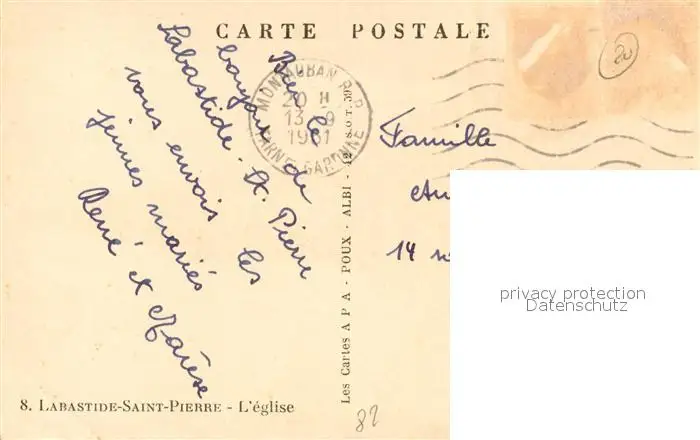 CARTE POSTALE
20
MONTAUBAN R.P.
20 H
13 - 9
1961
TARN-ET-GARONNE
Bien le
bonjour de
Labastide. St. Pierre
vous envois les
jeunes mariés
René et
Famille
14
Les Cartes A P A - POUX - ALBI - 42
privacy protection
Datenschutz
8. LABASTIDE-SAINT-PIERRE - L'église
82